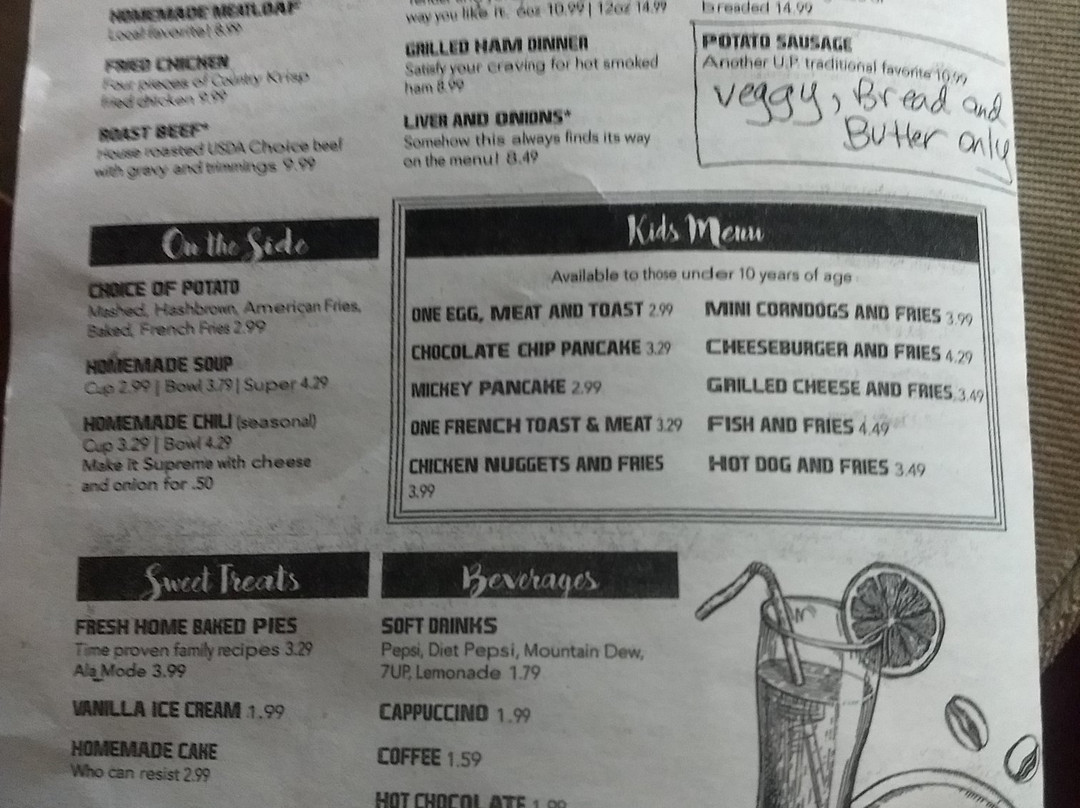 HOMEMADE MEATLOAF
Local favorite! 8.99
FRIED CHICKEN
Four pieces of Country Krisp
fried chicken 9.99
ROAST BEEF*
House roasted USDA Choice beef
with gravy and trimmings 9.99
way you like it. 6oz 10.99 | 12oz 14.99
GRILLED HAM DINNER
Satisfy your craving for hot smoked
ham 8.99
LIVER AND ONIONS*
Somehow this always finds its way
on the menu! 8.49
breaded 14.99
POTATO SAUSAGE
Another U.P. traditional favorite 10.99
veggy, Bread and
Butter only
On the Side
CHOICE OF POTATO
Mashed, Hashbrown, American Fries,
Baked, French Fries 2.99
HOMEMADE SOUP
Cup 2.99 | Bowl 3.79 | Super 4.29
HOMEMADE CHILI (seasonal)
Cup 3.29 | Bowl 4.29
Make it Supreme with cheese
and onion for .50
Kids Menu
Available to those under 10 years of age
ONE EGG, MEAT AND TOAST 2.99
CHOCOLATE CHIP PANCAKE 3.29
MICKEY PANCAKE 2.99
ONE FRENCH TOAST & MEAT 3.29
CHICKEN NUGGETS AND FRIES
3.99
MINI CORNDOGS AND FRIES 3.99
CHEESEBURGER AND FRIES 4.29
GRILLED CHEESE AND FRIES 3.49
FISH AND FRIES 4.49
HOT DOG AND FRIES 3.49
Sweet Treats
FRESH HOME BAKED PIES
Time proven family recipes 3.29
Ala Mode 3.99
VANILLA ICE CREAM 1.99
HOMEMADE CAKE
Who can resist 2.99
Beverages
SOFT DRINKS
Pepsi, Diet Pepsi, Mountain Dew,
7UP, Lemonade 1.79
CAPPUCCINO 1.99
COFFEE 1.59
HOT CHOCOLATE 1.99